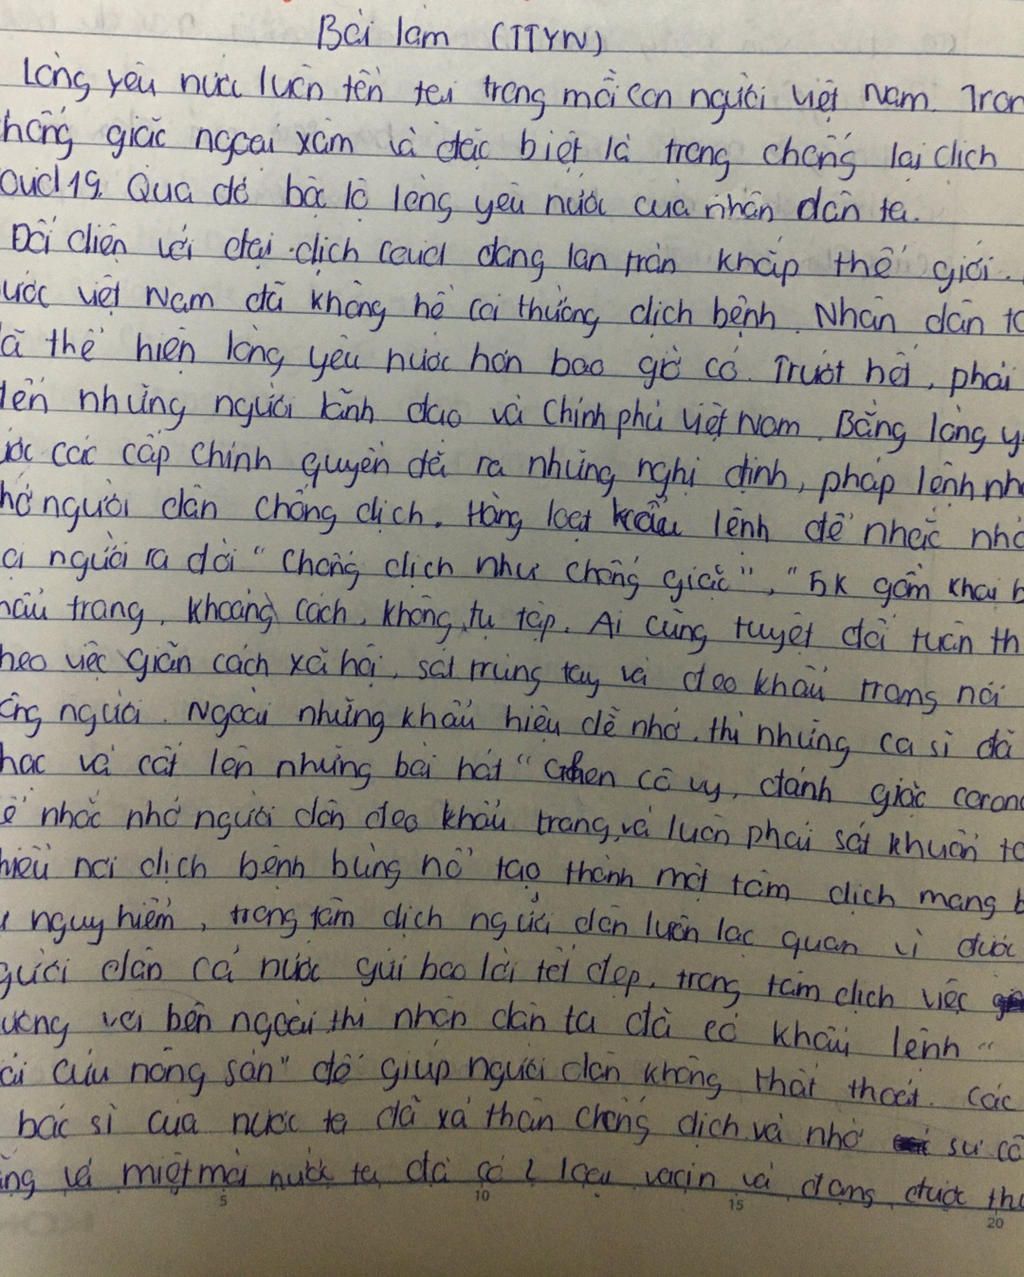 Bài làm (TTYN)
Lòng yêu nước luôn tồn tại trong mỗi con người Việt Nam. Tron
hống giặc ngoại xâm và đặc biệt là trong chống lại dịch
ovid 19. Qua đó bộc lộ lòng yêu nước của nhân dân ta.
Đối diện với đại dịch covid đang lan tràn khắp thế giới.
ước Việt Nam đã không hề coi thường dịch bệnh. Nhân dân ta
ã thể hiện lòng yêu nước hơn bao giờ có. Trướt hết, phải
đến những người lãnh đạo và chính phủ Việt Nam. Bằng lòng y
ước các cấp chính quyền đề ra những nghị định, pháp lệnh nh
hở người dân chống dịch. Hàng loạt khẩu lệnh để nhắc nhở
ọi người ra đời "Chống dịch như chống giặc", "5K gồm khai b
hẩu trang, khoảng cách, không tụ tập. Ai cũng tuyệt đối tuân th
heo việc giãn cách xã hội, sát trùng tay và đeo khẩu trang nơi
ông người. Ngoài những khẩu hiệu dễ nhớ, thì những ca sĩ đã
hạc và cất lên những bài hát "Ghen cô vy, đánh giặc corona
ể nhắc nhở người dân đeo khẩu trang và luôn phải sát khuẩn ta
hiều nơi dịch bệnh bùng nổ tạo thành một tâm dịch mang b
nguy hiểm, trong tâm dịch người dân luôn lạc quan vì được
gười dân cả nước gửi bao lời tốt đẹp, trong tâm dịch việc
ương với bên ngoài thì nhân dân ta đã có khẩu lệnh "
ải cứu nông sản" để giúp người dân không thất thoát. Các
bác sĩ của nước ta đã xả thân chống dịch và nhờ sự cố
ắng và miệt mài nước ta đã có 2 loại vacin và đang được thử